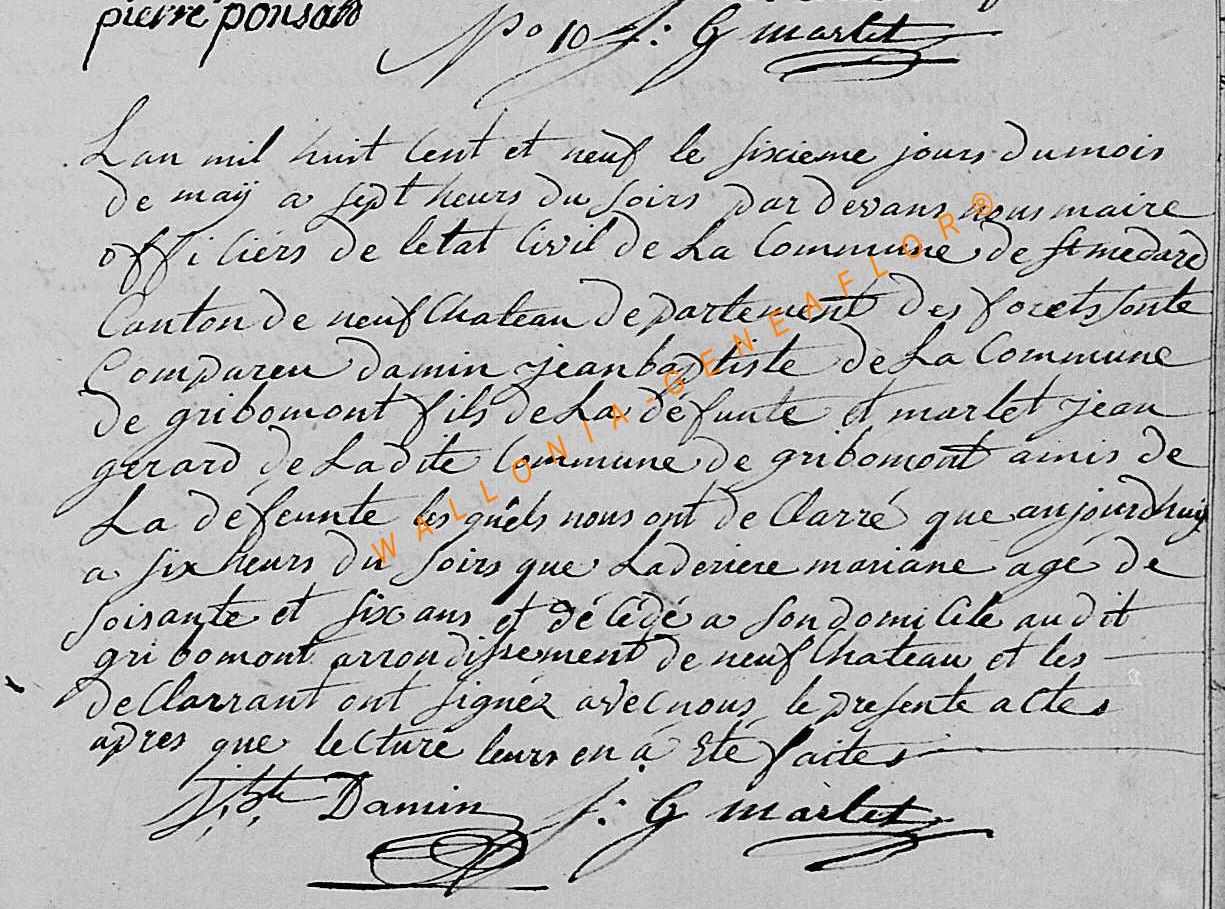 pierre ponsard
No 10 J: G marlet
Lan mil huit Cent et neuf le sixieme jours du mois
de maÿ a sept heurs du soirs par devans nous maire
officiers de letat Civil de La Commune de St medard
Canton de neufChateau departement des forets sonte
Compareu damin jean baptiste de La Commune
de gribomont fils de La défunte et marlet jean
gerard de Ladite Commune de gribomont amis de
La défeunte les quels nous ont declarré que aujourdhuy
a six heurs du soirs que Laderiere mariane age de
soisante et six ans et décédé a son domicile audit
gribomont arrondissement de neufChateau et les
declarrant ont signez avec nous le presente actes
apres que lecture leurs en a Eté faites
J: bte Damin J: G marlet
WALLONIA-GENEAFLOR®